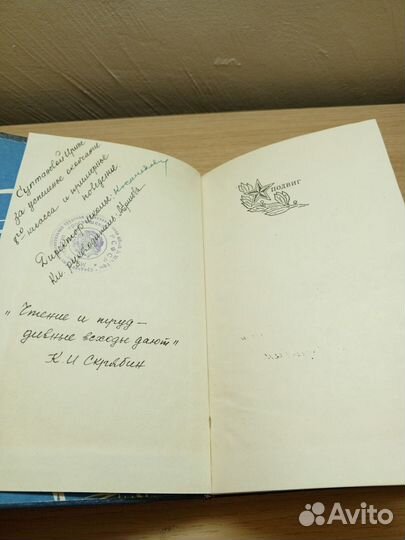 Султановой Ирине
за успешное окончание
8го класса и примерное
поведение.
Директор школы
Кл. руководитель:
РСФСР
"Чтение и труд –
дивные всходы дают"
К.И Скрябин
подвиг
Avito